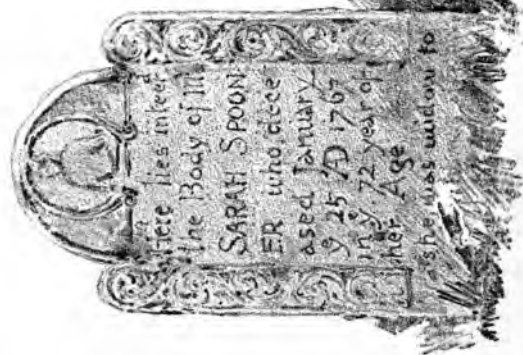 Here lies inker'd
the Body of M
SARAH SPOON
ER who dece
ased January
ye 25 AD 1767
in ye 72 year of
her Age
ashe was widow to